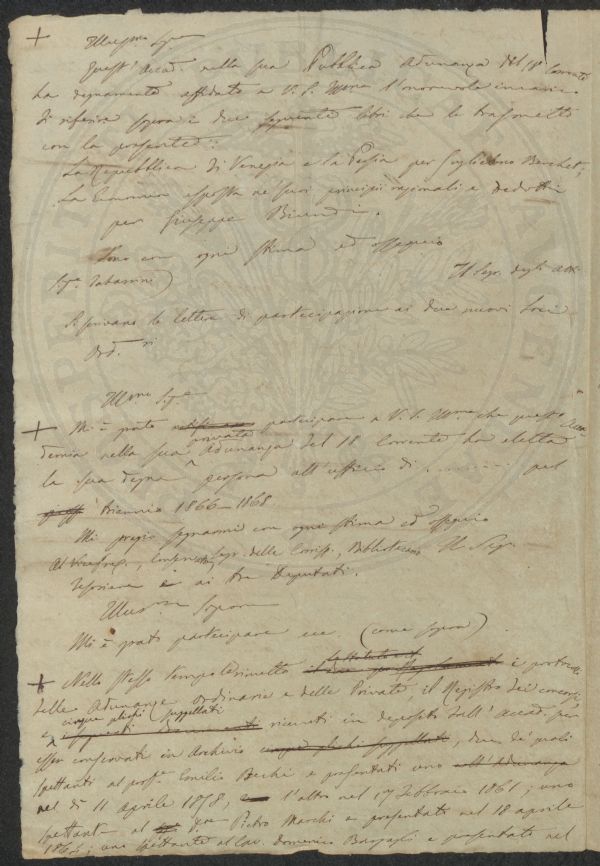 Illusmo Sigre
Quest' Accad. nella sua Pubblica Adunanza del 18 Corrente
ha degnamente affidato a V. S. Illma l'onorevole incarico
di riferire sopra i due seguenti libri che le trasmetto
con la presente:
La Repubblica di Venezia e la Persia per Guglielmo Berchet;
La Economia esposta ne' suoi principii razionali e dedotti
per Giuseppe Biundi.
Sono con ogni stima ed ossequio
Sigre Tabarrini) Il Segr. degli Atti
Si scrivano le lettere di partecipazione ai due nuovi Soci
Ord.ri
Illmo Sigre
Mi è grato partecipare a V. S. Illma che questa Acca-
privata
demia nella sua Adunanza del 18 Corrente ha eletta
la sua degna persona all'ufficio di ........ pel
Triennio 1866-1868
Mi pregio segnarmi con ogni stima ed ossequio
Al Vicepres., Segr. delle Corrisp., Bibliotecario Il Segr.
Tesoriere e ai tre Deputati.
Illusmo Signore
Mi è grato partecipare ecc. (come sopra)
Nello stesso tempo Le rimetto i
delle Adunanze Ordinarie e delle Private, il Registro dei concorsi
cinque plichi suggellati
e ricevuti in deposito dall'Accad. per
esser conservati in Archivio cinque plichi suggellati, due de' quali
spettanti al profre Emilio Bechi e presentati uno all'Adunanza
nel dì 11 aprile 1858, l'altro nel 17 Febbraio 1861; uno
spettante al Pietro Marchi e presentato nel 18 aprile
1863; uno spettante al Cav. Domenico Barsagli e presentato nel